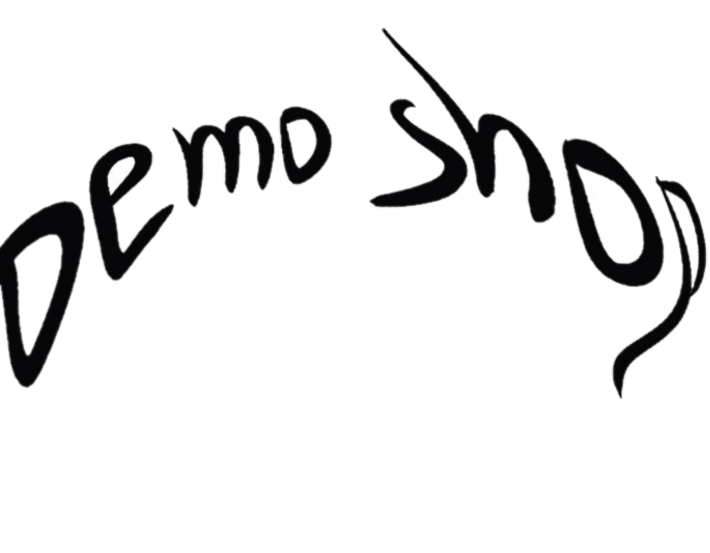 Demo shop